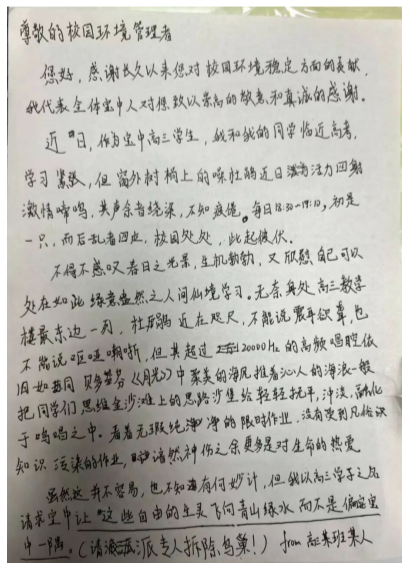 尊敬的校园环境管理者
您好,感谢长久以来您对校园环境稳定方面的贡献,
我代表全体宝中人对您致以崇高的敬意和真诚的感谢。
近日,作为宝中高三学生,我和我的同学临近高考,
学习紧张,但窗外树梢上的噪杜鹃近日活力四射
激情啼鸣,其声余音绕梁,不知疲倦。每日18:30-19:10,初是
一只,而后乱者四应,校园处处,此起彼伏。
不得不感叹春日之光景,生机勃勃,又欣慰自己可以
处在如此绿意盎然之人间仙境学习。无奈身处高三教学
楼最东边一列,杜鹃近在咫尺,不能说震耳欲聋,也
不能说呕哑嘲哳,但其超过20000Hz的高频唱腔依
旧如同贝多芬《月光》中柔美的海风推着沁人的海浪一般
把同学们思维金沙滩上的思路沙堡给轻轻抚平,冲淡,融化
于鸣唱之中。看着无瑕纯净的限时作业,没有受到凡俗
知识污染的作业,黯然神伤之余更多是对生命的热爱
虽然这并不容易,也不知道有何妙计,但我以高三学子之名
请求宝中让这些自由的生灵飞向青山绿水而不是偏安宝
中一隅。(请派专人拆除鸟巢!) from 高三某班某人